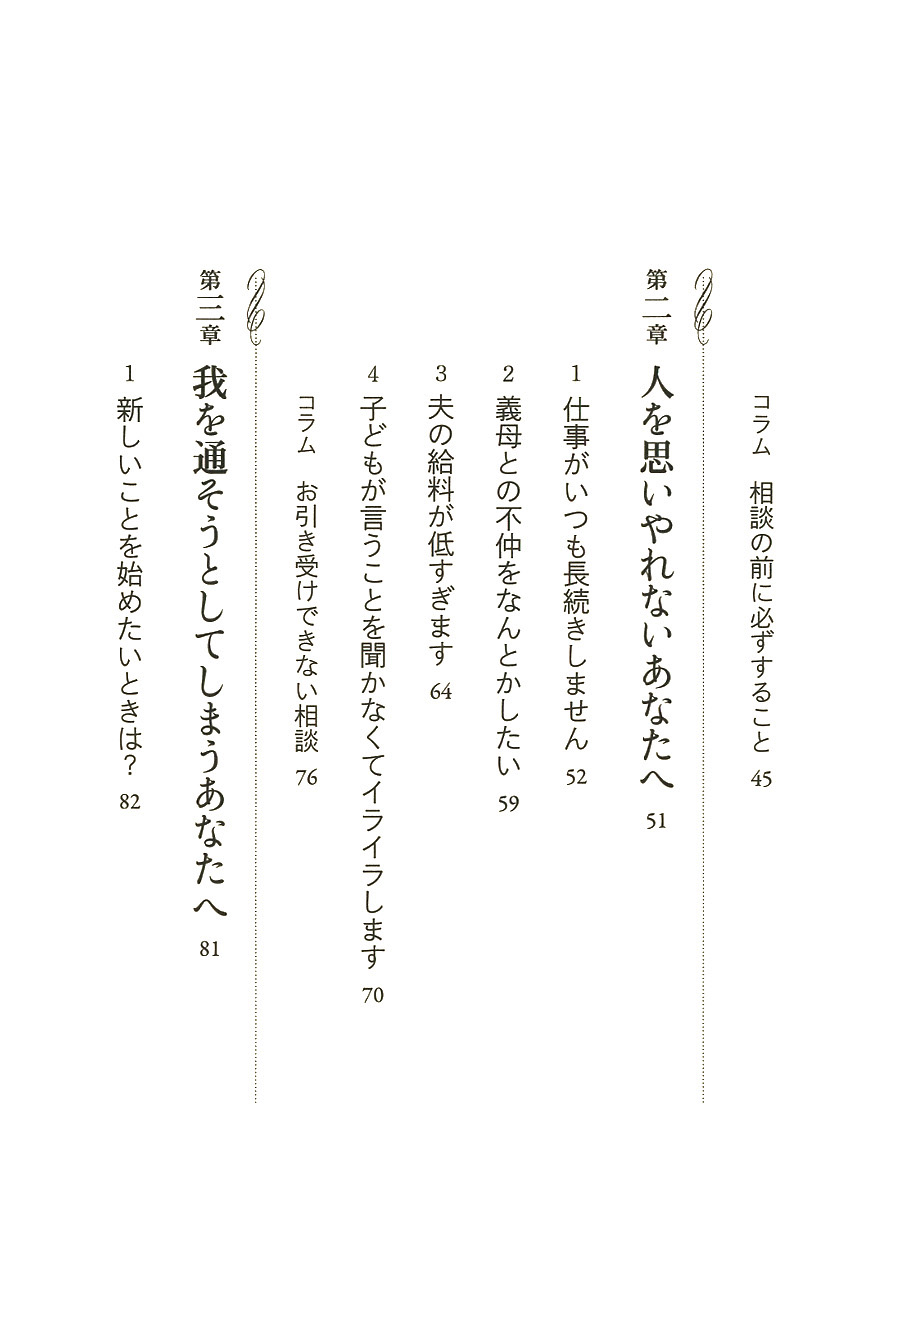 コラム　相談の前に必ずすること 45
第二章 人を思いやれないあなたへ 51
1 仕事がいつも長続きしません 52
2 義母との不仲をなんとかしたい 59
3 夫の給料が低すぎます 64
4 子どもが言うことを聞かなくてイライラします 70
コラム　お引き受けできない相談 76
第三章 我を通そうとしてしまうあなたへ 81
1 新しいことを始めたいときは？ 82